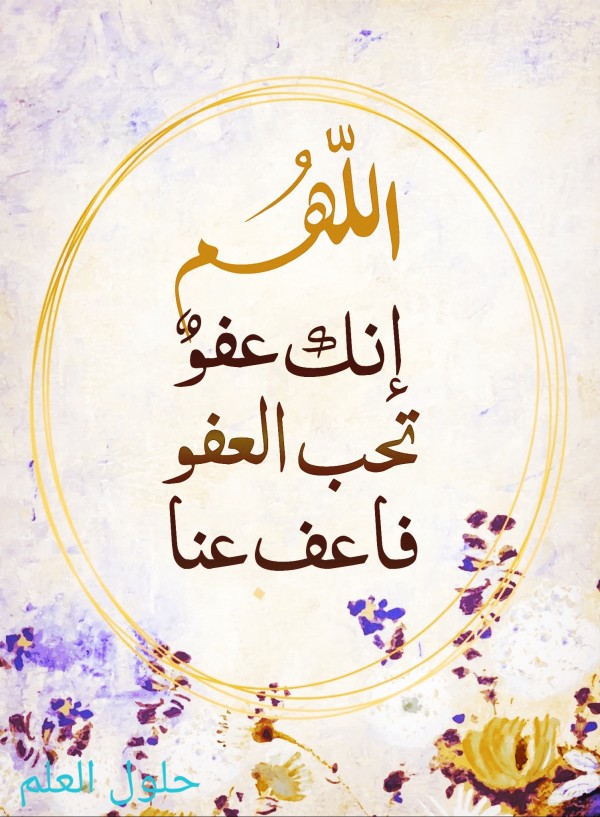 اللّهُم
إنك عفوٌ
تحب العفو
فاعف عنا
حلول العلم